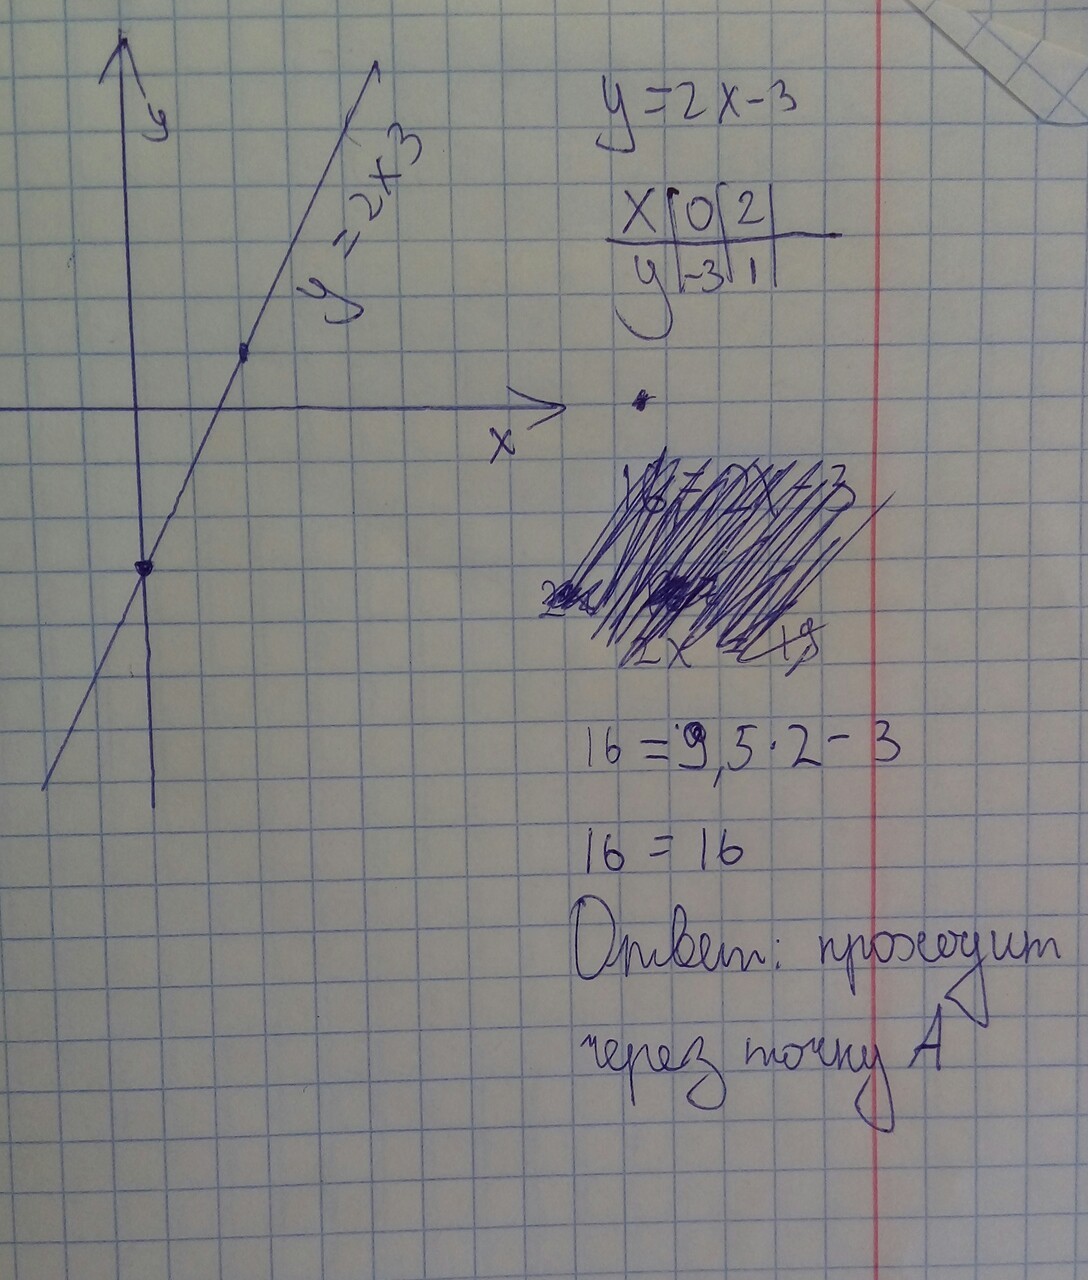 y
y = 2x 3
x
y = 2x-3
x | 0 | 2 |
y | -3 | 1 |
16 = 9,5 · 2 - 3
16 = 16
Ответ: проходит
через точку А